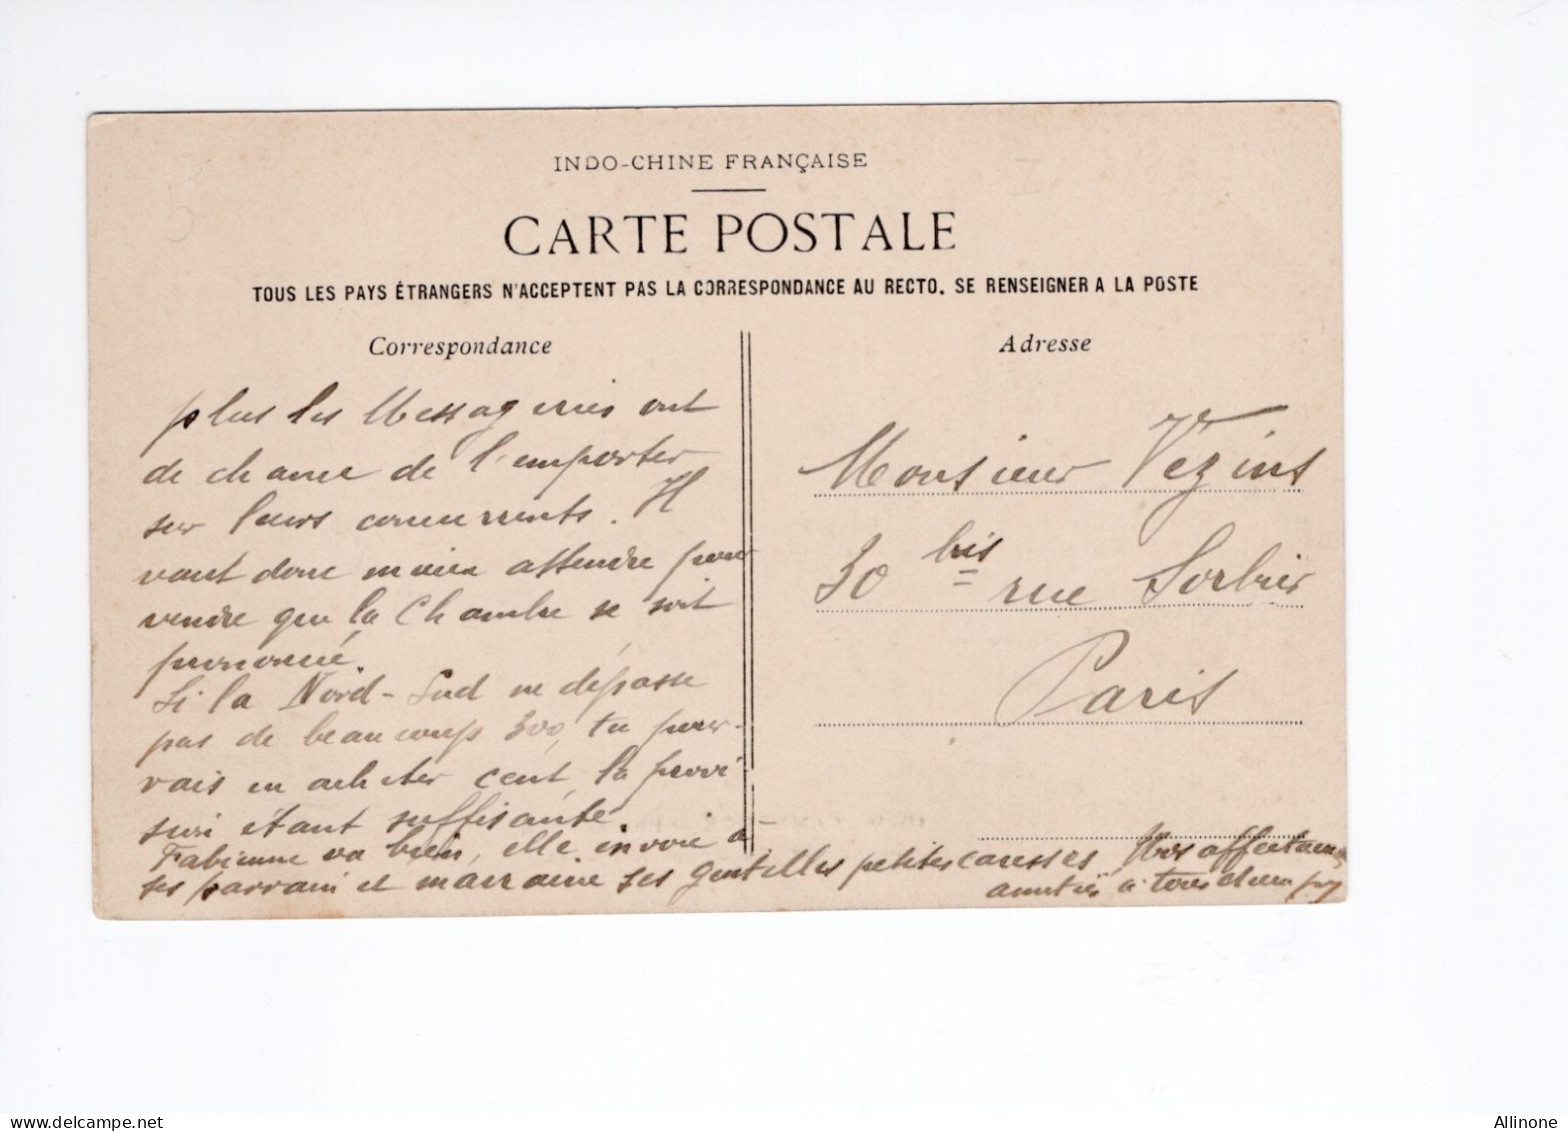 INDO-CHINE FRANÇAISE
CARTE POSTALE
TOUS LES PAYS ÉTRANGERS N'ACCEPTENT PAS LA CORRESPONDANCE AU RECTO. SE RENSEIGNER A LA POSTE
Correspondance
plus les Messageries ont
de chance de l'emporter
sur leurs concurrents. Il
vaut donc mieux attendre pour
vendre que la Chambre se soit
prononcé.
Si la Nord-Sud ne dépasse
pas de beaucoup 300, tu pour-
rais en acheter cent, la provi-
sion étant suffisante
Fabienne va bien, elle envoie à
ses parrain et marraine ses gentilles petites caresses, Nos affectueuses
amitiés à tous deux
Adresse
Monsieur Vezins
30 bis rue Sorbier
Paris
delcampe.net
Allinone